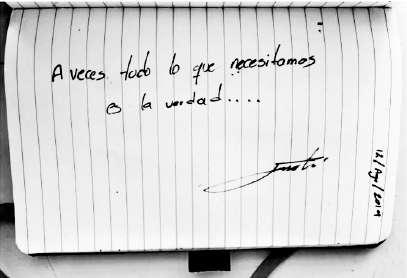 A veces todo lo que necesitamos
es la verdad....
12/Ago/2019